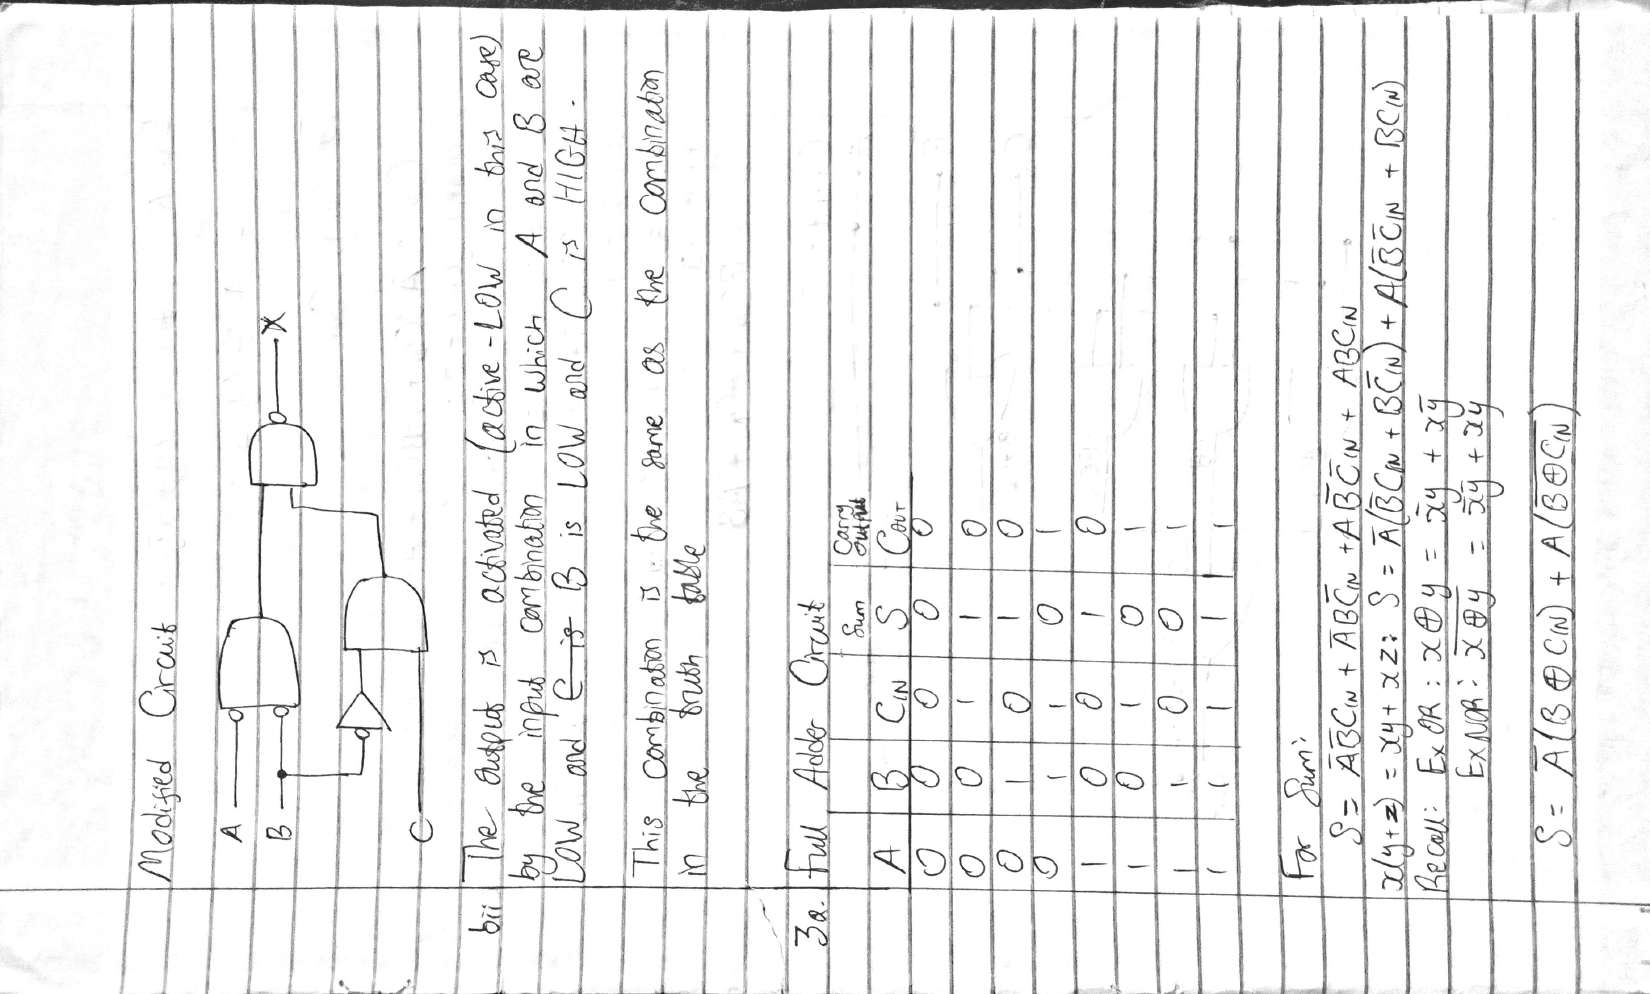 Modified Circuit
A
B
C
X
bii The output is activated (active-LOW in this case)
by the input combination in which A and B are
LOW and C is B is LOW and C is HIGH.
This combination is the same as the combination
in the truth table
3a. Full Adder Circuit
Sum Carry output
A B CIN S COUT
0 0 0 0 0
0 0 1 1 0
0 1 0 1 0
0 1 1 0 1
1 0 0 1 0
1 0 1 0 1
1 1 0 0 1
1 1 1 1 1
For Sum:
S = A̅B̅CIN + A̅BC̅IN + AB̅C̅IN + ABCIN
x(y+z) = xy + xz: S = A̅(B̅CIN + BC̅IN) + A(B̅C̅IN + BCIN)
Recall: ExOR: x⊕y = x̅y + xy̅
ExNOR: x̅⊕̅y̅ = x̅y̅ + xy
S = A̅(B⊕CIN) + A(B̅⊕̅C̅I̅N̅)